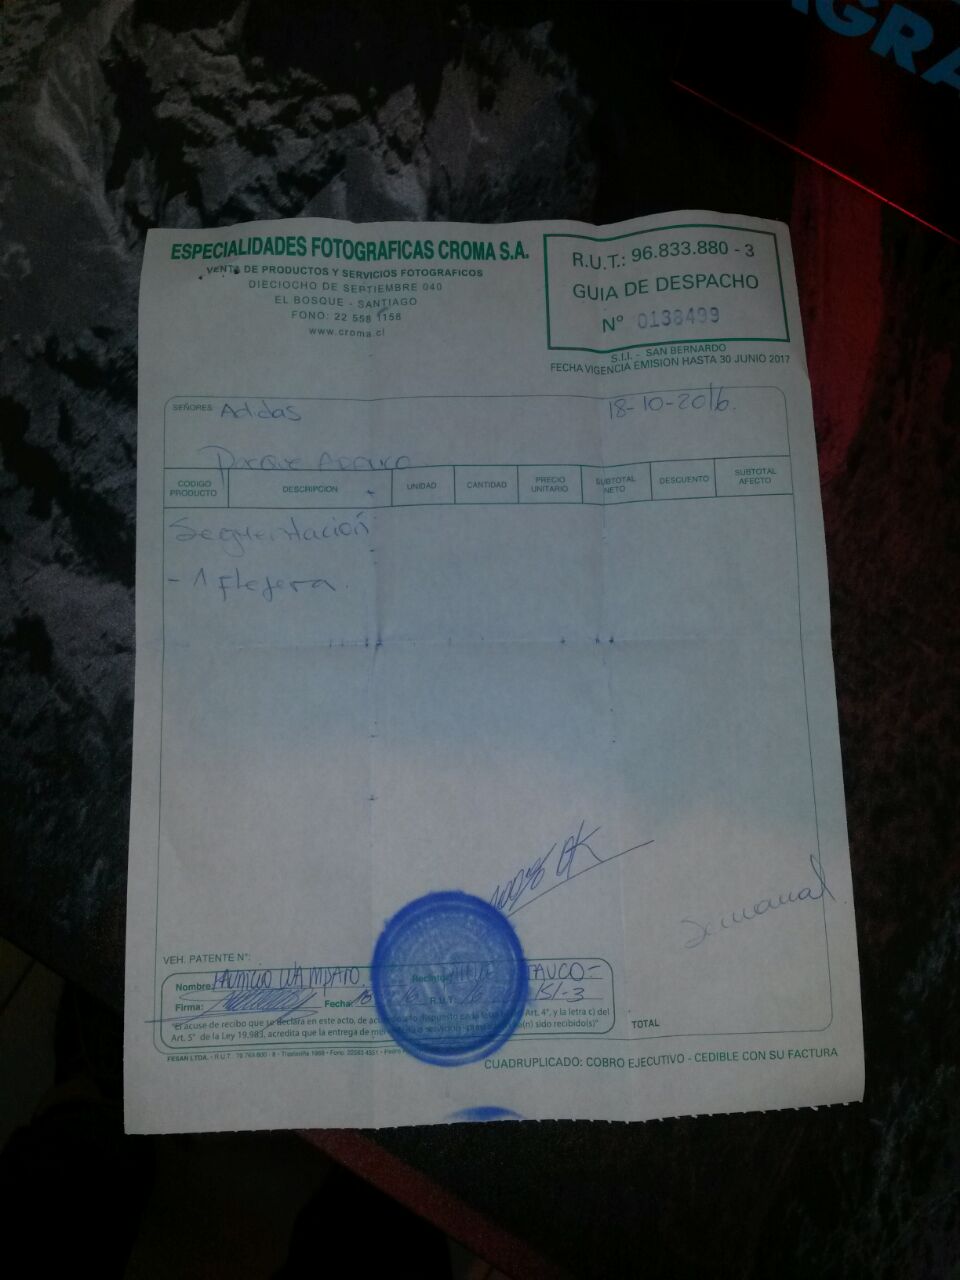 IGRA
ESPECIALIDADES FOTOGRAFICAS CROMA S.A.
VENTA DE PRODUCTOS Y SERVICIOS FOTOGRAFICOS
DIECIOCHO DE SEPTIEMBRE 040
EL BOSQUE - SANTIAGO
FONO: 22 558 1158
www.croma.cl
R.U.T.: 96.833.880 - 3
GUIA DE DESPACHO
Nº 0138499
S.I.I. - SAN BERNARDO
FECHA VIGENCIA EMISION HASTA 30 JUNIO 2017
SEÑORES Adidas 18-10-2016.
Parque Arauco
CODIGO PRODUCTO DESCRIPCION UNIDAD CANTIDAD PRECIO UNITARIO SUBTOTAL NETO DESCUENTO SUBTOTAL AFECTO
Segmentación
- 1 flejera.
100% OK
Semanal
VEH. PATENTE Nº:
Nombre: Recinto:
Firma: Fecha: R.U.T.: 151-3
"El acuse de recibo que se declara en este acto, de acuerdo a lo dispuesto en la letra Art. 4°, y la letra c) del
Art. 5° de la Ley 19.983, acredita que la entrega de servicio sido recibido(s)"
TOTAL
FESAN LTDA. - R.U.T.
CUADRUPLICADO: COBRO EJECUTIVO - CEDIBLE CON SU FACTURA